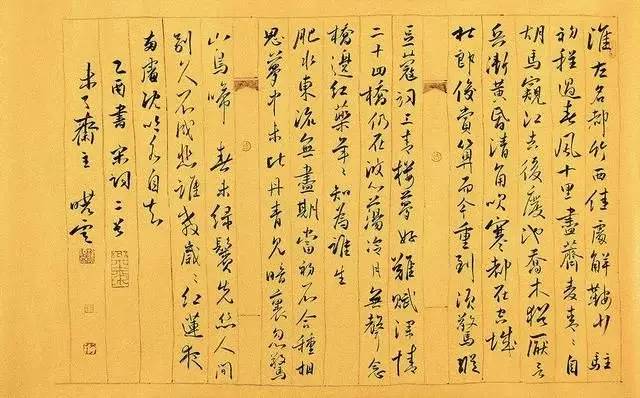 淮左名都竹西佳處解鞍少駐
初程過春風十里盡薺麥青〻自
胡馬窺江去後廢池喬木猶厭言
兵漸黃昏清角吹寒都在空城
杜郎俊賞算而今重到須驚縱
豆蔻詞工青樓夢好難賦深情
二十四橋仍在波心蕩冷月無聲念
橋邊紅藥年〻知為誰生
肥水東流無盡期當初不合種相
思夢中未比丹青見暗裏忽驚
山鳥啼 春未綠鬢先絲人間
別久不成悲誰教歲〻紅蓮夜
兩處沈吟各自知
乙酉書宋詞二首
未了齋主 曉雲